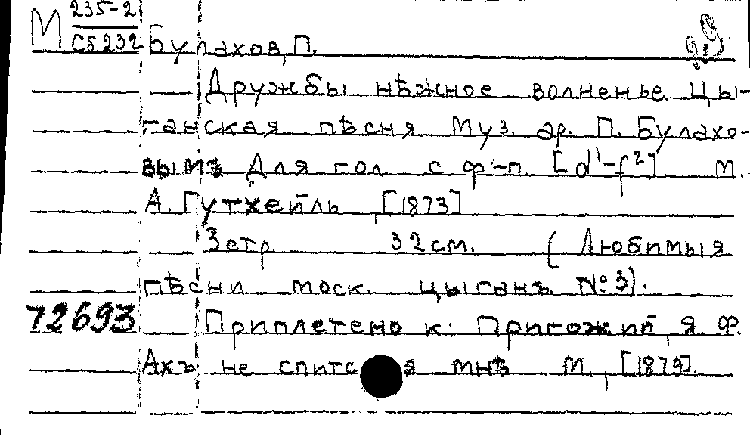 М 235-2
С5232 Булахов, П.
Дружбы нѣжное волненье. Цы-
ганская пѣсня Муз. ар. П. Булахо-
вымъ Для гол. с ф-п. [d¹-f²] М.
А. Гутхейль [1873]
3 стр 32 см. (Любимыя
пѣсни моск. цыганъ №3).
72693 Приплетено к: Пригожий, Я. Ф.
Ахъ не спится мнѣ М., [1879].